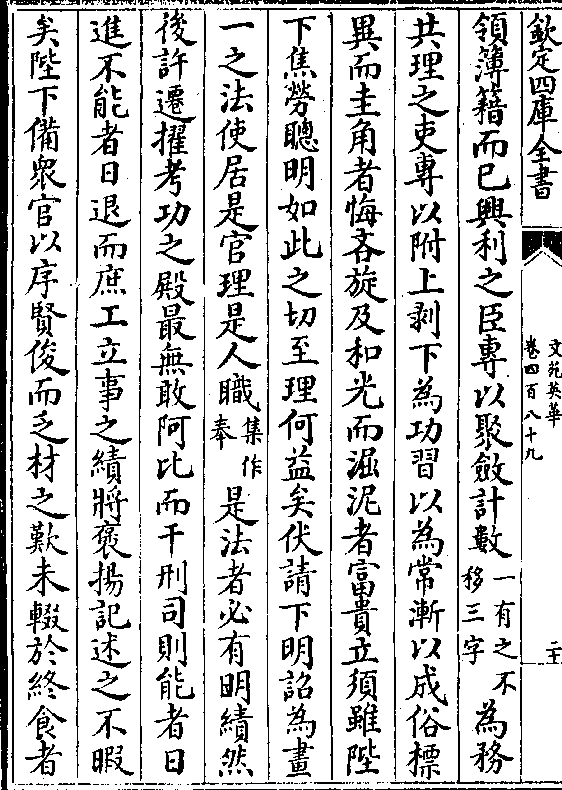 欽定四庫全書
文苑英華
卷四百八十九
二十
領簿籍而已興利之臣專以聚斂計數一有之不移三字為務
共理之吏專以附上剥下為功習以為常漸以成俗標
異而圭角者悔吝旋及和光而淈泥者富貴立須雖陛
下焦勞聰明如此之切至理何益矣伏請下明詔為畫
一之法使居是官理是人職集作奉是法者必有明績然
後許遷擢考功之殿最無敢阿比而干刑司則能者日
進不能者日退而庶工立事之績將褒揚記述之不暇
矣陛下備衆官以序賢俊而乏材之歎未輟於終食者